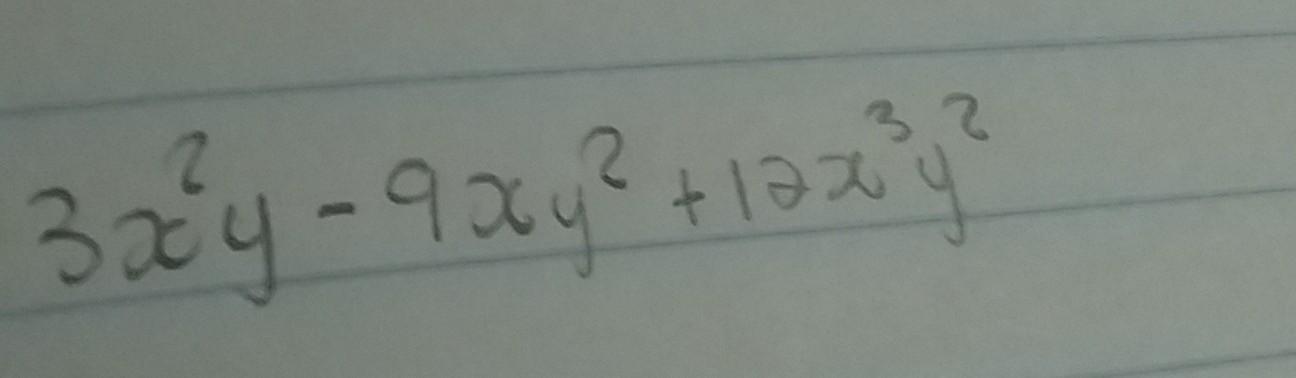 3x²y - 9xy² + 12x³y²